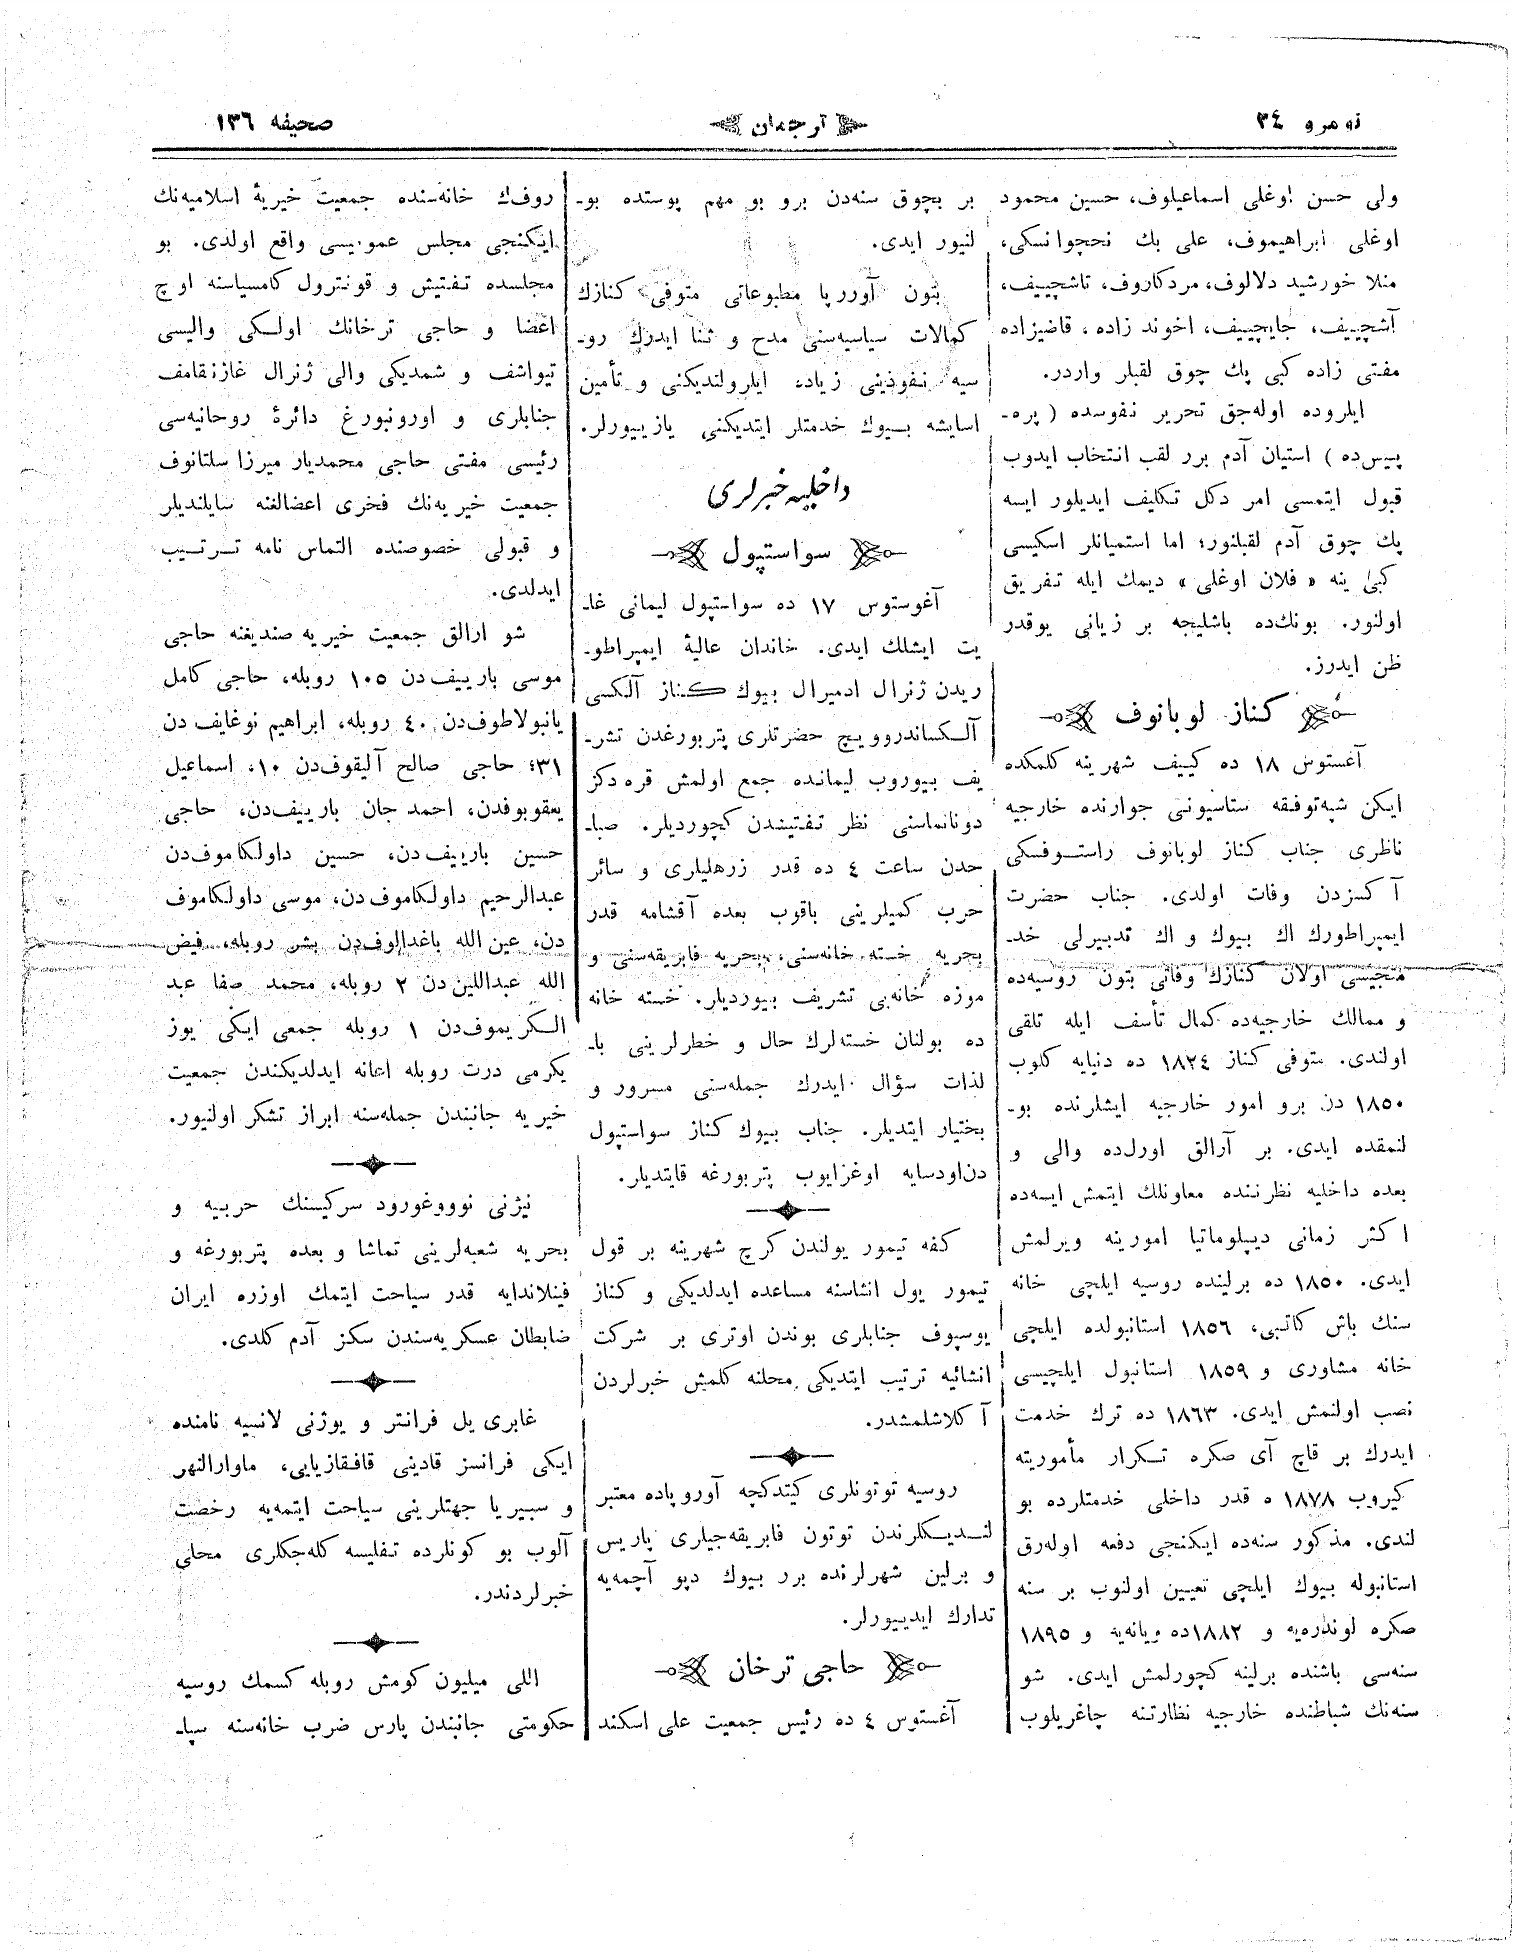 نومرو ٣٤
ترجمان
صحیفه ١٣٦
ولی حسن اوغلی اسماعیلوف، حسین محمود
اوغلی ابراهیموف، علی بك نخچوانسکی،
منلا خورشید دلالوف، مردکاروف، تاشچییف،
آشچییف، جایچییف، اخوند زاده ، قاضیزاده
مفتی زاده کبی پك چوق لقبلر واردر.
ایلروده اوله‌جق تحریر نفوسده ( پره‌ـ
پیس‌ده ) استیان آدم برر لقب انتخاب ایدوب
قبول ایتمسی امر دکل تکلیف ایدیلور ایسه
پك چوق آدم لقبلنور؛ اما استمیانلر اسکیسی
کبی ینه « فلان اوغلی » دیمك ایله تفریق
اولنور. بونك‌ده باشلیجه بر زیانی یوقدر
ظن ایدرز.
کناز لوبانوف
آغستوس ١٨ ده کییف شهرینه کلمکده
ایکن شپه‌توفقه ستاسیونی جوارنده خارجیه
ناظری جناب کناز لوبانوف راستوفسکی
آکسزدن وفات اولدی. جناب حضرت
ایمپراطورك اك بیوك و اك تدبیرلی خدـ
متجیسی اولان کنازك وفاتی بتون روسیه‌ده
و ممالك خارجیه‌ده کمال تأسف ایله تلقی
اولندی. متوفی کناز ١٨٢٤ ده دنیایه کلوب
١٨٥٠ دن برو امور خارجیه ایشلرنده بوـ
لنمقده ایدی. بر آرالق اورل‌ده والی و
بعده داخلیه نظرننده معاونلك ایتمش ایسه‌ده
اکثر زمانی دیپلوماتیا امورینه ویرلمش
ایدی. ١٨٥٠ ده برلینده روسیه ایلچی خانه
سنك باش کاتبی، ١٨٥٦ استانبولده ایلچی
خانه مشاوری و ١٨٥٩ استانبول ایلچیسی
نصب اولنمش ایدی. ١٨٦٣ ده ترك خدمت
ایدرك بر قاچ آی صکره تکرار مأموریته
کیروب ١٨٧٨ ه قدر داخلی خدمتلرده بو
لندی. مذکور سنه‌ده ایکنجی دفعه اوله‌رق
استانبوله بیوك ایلچی تعیین اولنوب بر سنه
صکره لوندره‌یه و ١٨٨٢ده ویانه‌یه و ١٨٩٥
سنه‌سی باشنده برلینه کچورلمش ایدی. شو
سنه‌نك شباطنده خارجیه نظارتنه چاغریلوب
بر بچوق سنه‌دن برو بو مهم پوستده بوـ
لنیور ایدی.
بتون آوروپا مطبوعاتی متوفی کنازك
کمالات سیاسیه‌سنی مدح و ثنا ایدرك روـ
سیه نفوذینی زیاده ایلرولندیکنی و تأمین
اسایشه بیوك خدمتلر ایتدیکنی یازییورلر.
داخلیه خبرلری
سواستپول
آغوستوس ١٧ ده سواستپول لیمانی غاـ
یت ایشلك ایدی. خاندان عالیهٔ ایمپراطوـ
ریدن ژنرال ادمیرال بیوك کناز آلکسی
آلکساندروویچ حضرتلری پتربورغدن تشرـ
یف بیوروب لیمانده جمع اولمش قره دکز
دونانماسنی نظر تفتیشدن کچوردیلر. صباـ
حدن ساعت ٤ ده قدر زرهلیلری و سائر
حرب کمیلرینی باقوب بعده آقشامه قدر
بحریه خسته خانه‌سنی، بحریه فابریقه‌سنی و
موزه خانه‌یی تشریف بیوردیلر. خسته خانه
ده بولنان خسته‌لرك حال و خطرلرینی باـ
لذات سؤال ایدرك جمله‌سنی مسرور و
بختیار ایتدیلر. جناب بیوك کناز سواستپول
دن‌اودسایه اوغزایوب پتربورغه قایتدیلر.
کفه تیمور یولندن کرچ شهرینه بر قول
تیمور یول انشاسنه مساعده ایدلدیکی و کناز
یوسپوف جنابلری بوندن اوتری بر شرکت
انشائیه ترتیب ایتدیکی محلنه کلمش خبرلردن
آکلاشلمشدر.
روسیه توتونلری کیتدکچه آوروپاده معتبر
لندیکلرندن توتون فابریقه‌جیلری پاریس
و برلین شهرلرنده برر بیوك دپو آچمه‌یه
تدارك ایدییورلر.
حاجی ترخان
آغستوس ٤ ده رئیس جمعیت علی اسکند
روف‌ك خانه‌سنده جمعیت خیریهٔ اسلامیه‌نك
ایکنجی مجلس عمومیسی واقع اولدی. بو
مجلسده تفتیش و قونترول کامسیاسنه اوچ
اعضا و حاجی ترخانك اولکی والیسی
تیواشف و شمدیکی والی ژنرال غازنقامف
جنابلری و اورونبورغ دائرهٔ روحانیه‌سی
رئیسی مفتی حاجی محمدیار میرزا سلتانوف
جمعیت خیریه‌نك فخری اعضالغنه سایلندیلر
و قبولی خصوصنده التماس نامه ترتیب
ایدلدی.
شو ارالق جمعیت خیریه صندیغنه حاجی
موسی بارییف‌دن ١٠٥ روبله، حاجی کامل
یانبولاطوف‌دن ٤٠ روبله، ابراهیم نوغایف دن
٣١؛ حاجی صالح آلیقوف‌دن ١٠، اسماعیل
یعقوبوفدن، احمد جان بارییف‌دن، حاجی
حسین بارییف‌دن، حسین داولکاموف‌دن
عبدالرحیم داولکاموف دن، موسی داولکاموف
دن، عین الله باغدالوف‌دن بشر روبله، فیض
الله عبداللین دن ٢ روبله، محمد صفا عبد
الکریموف‌دن ١ روبله جمعی ایکی یوز
یکرمی درت روبله اعانه ایدلدیکندن جمعیت
خیریه جانبندن جمله‌سنه ابراز تشکر اولنیور.
نیژنی نوووغورود سرکیسنك حربیه و
بحریه شعبه‌لرینی تماشا و بعده پتربورغه و
فینلاندایه قدر سیاحت ایتمك اوزره ایران
ضابطان عسکریه‌سندن سکز آدم کلدی.
غابری یل فرانتر و یوژنی لانسیه نامنده
ایکی فرانسز قادینی قافقازیایی، ماوارالنهر
و سبیریا جهتلرینی سیاحت ایتمه‌یه رخصت
آلوب بو کونلرده تفلیسه کله‌جکلری محلی
خبرلردندر.
اللی میلیون کومش روبله کسمك روسیه
حکومتی جانبندن پارس ضرب خانه‌سنه سپاـ